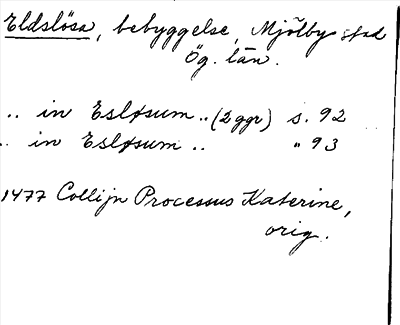 Eldslösa, bebyggelse, Mjölby stad
Ög. län.
.. in Esløsum .. (2 ggr) s. 92
.. in Esløsum .. " 93
1477 Collijn Processus Katerine,
orig.